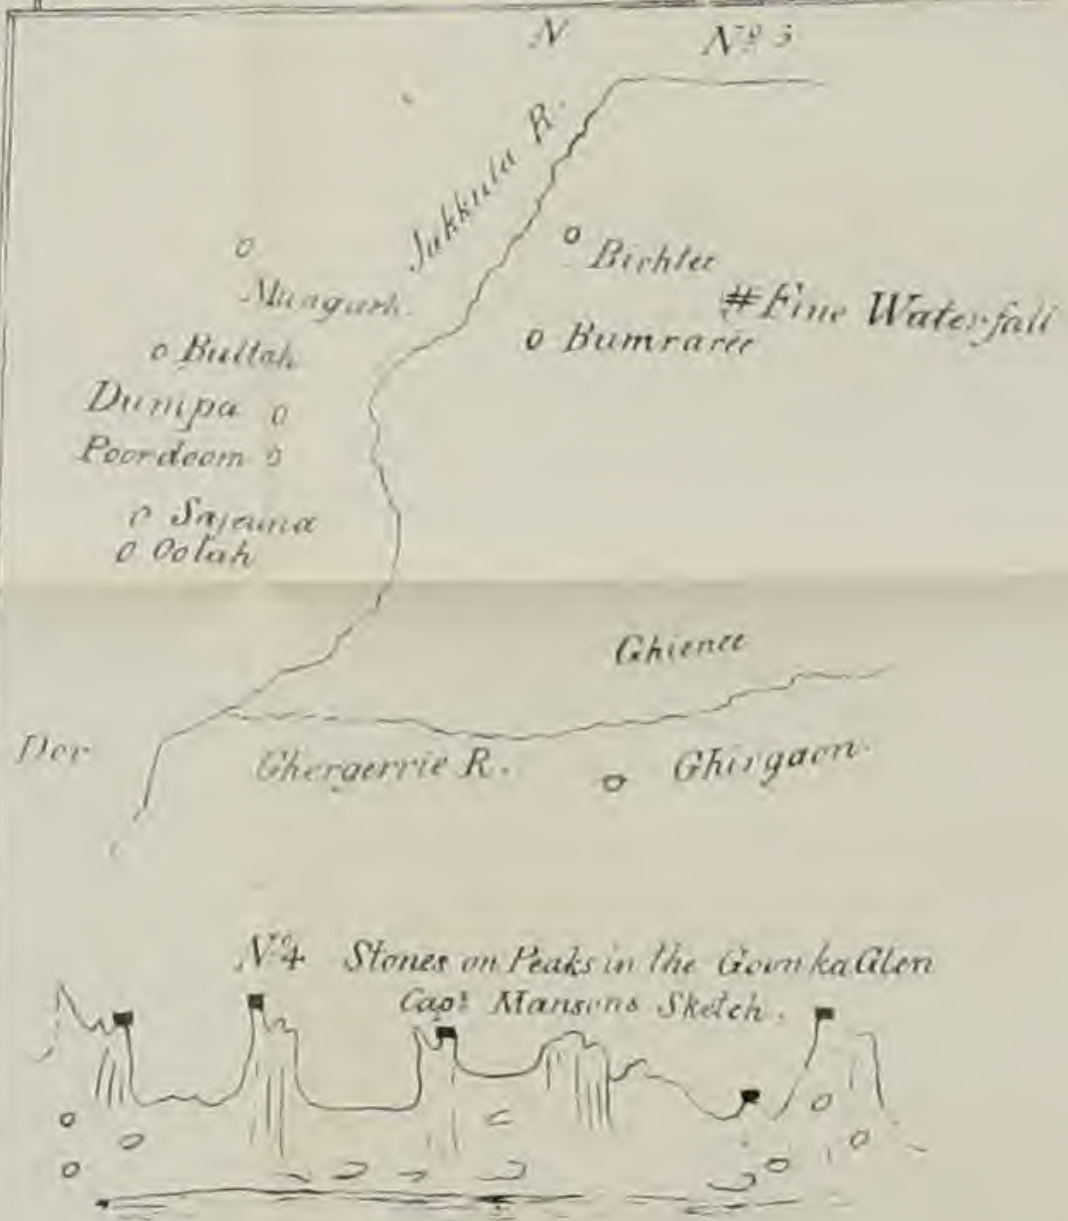 N Nº 3
Jukkula R.
Birhlee
Mungurh.
#Fine Waterfall
Bultah
Bumraree
Dumpa
Poordoom
Sajeuna
Oolah
Ghienee
Der
Ghergerrie R.
Ghirgaon.
Nº 4 Stones on Peaks in the Gounka Glen
Capt Mansons Sketch.